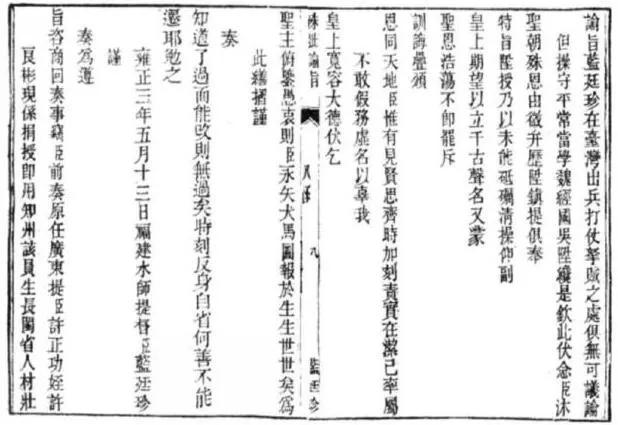 諭旨藍廷珍在臺灣出兵打仗拏賊之處俱無可議論
但操守平常當學魏經國吳陞纔是欽此伏念臣沐
聖朝殊恩由微弁歷陞鎮提俱奉
特旨陞授乃以未能砥礪清操仰副
皇上期望以立千古聲名又蒙
聖恩浩蕩不卽罷斥
訓誨疊頒
恩同天地臣惟有見賢思齊時加刻責實在潔己率屬
不敢假務虛名以辜我
皇上寬容大德伏乞
硃批諭旨
九
藍廷珍
聖主俯鑒愚衷則臣永矢犬馬圖報於生生世世矣為
此繕摺謹
奏
知道了過而能改則無過矣時刻反身自省何善不能
遷耶勉之
雍正三年五月十三日福建水師提督臣藍廷珍
謹
奏為遵
旨咨商回奏事竊臣前奏原任廣東提臣許正功姪許
良彬現係捐授卽用知州該員生長閩省人材壯